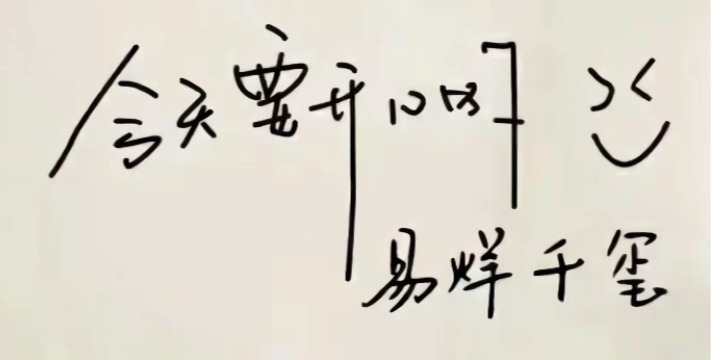 今天要开心哦
易烊千玺